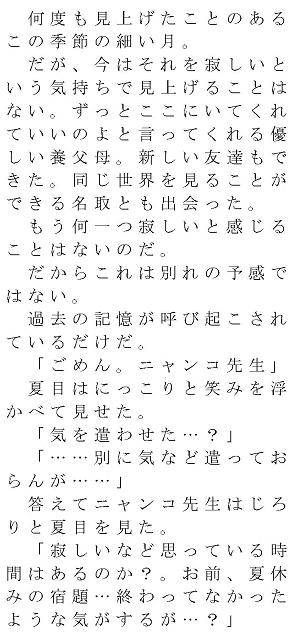 何度も見上げたことのある
この季節の細い月。
　だが、今はそれを寂しいと
いう気持ちで見上げることは
ない。ずっとここにいてくれ
ていいのよと言ってくれる優
しい養父母。新しい友達もで
きた。同じ世界を見ることが
できる名取とも出会った。
　もう何一つ寂しいと感じる
ことはないのだ。
　だからこれは別れの予感で
はない。
　過去の記憶が呼び起こされ
ているだけだ。
　「ごめん。ニャンコ先生」
　夏目はにっこりと笑みを浮
かべて見せた。
　「気を遣わせた…？」
　「……別に気など遣ってお
らんが……」
　答えてニャンコ先生はじろ
りと夏目を見た。
　「寂しいなど思っている時
間はあるのか？。お前、夏休
みの宿題…終わってなかった
ような気がするが…？」